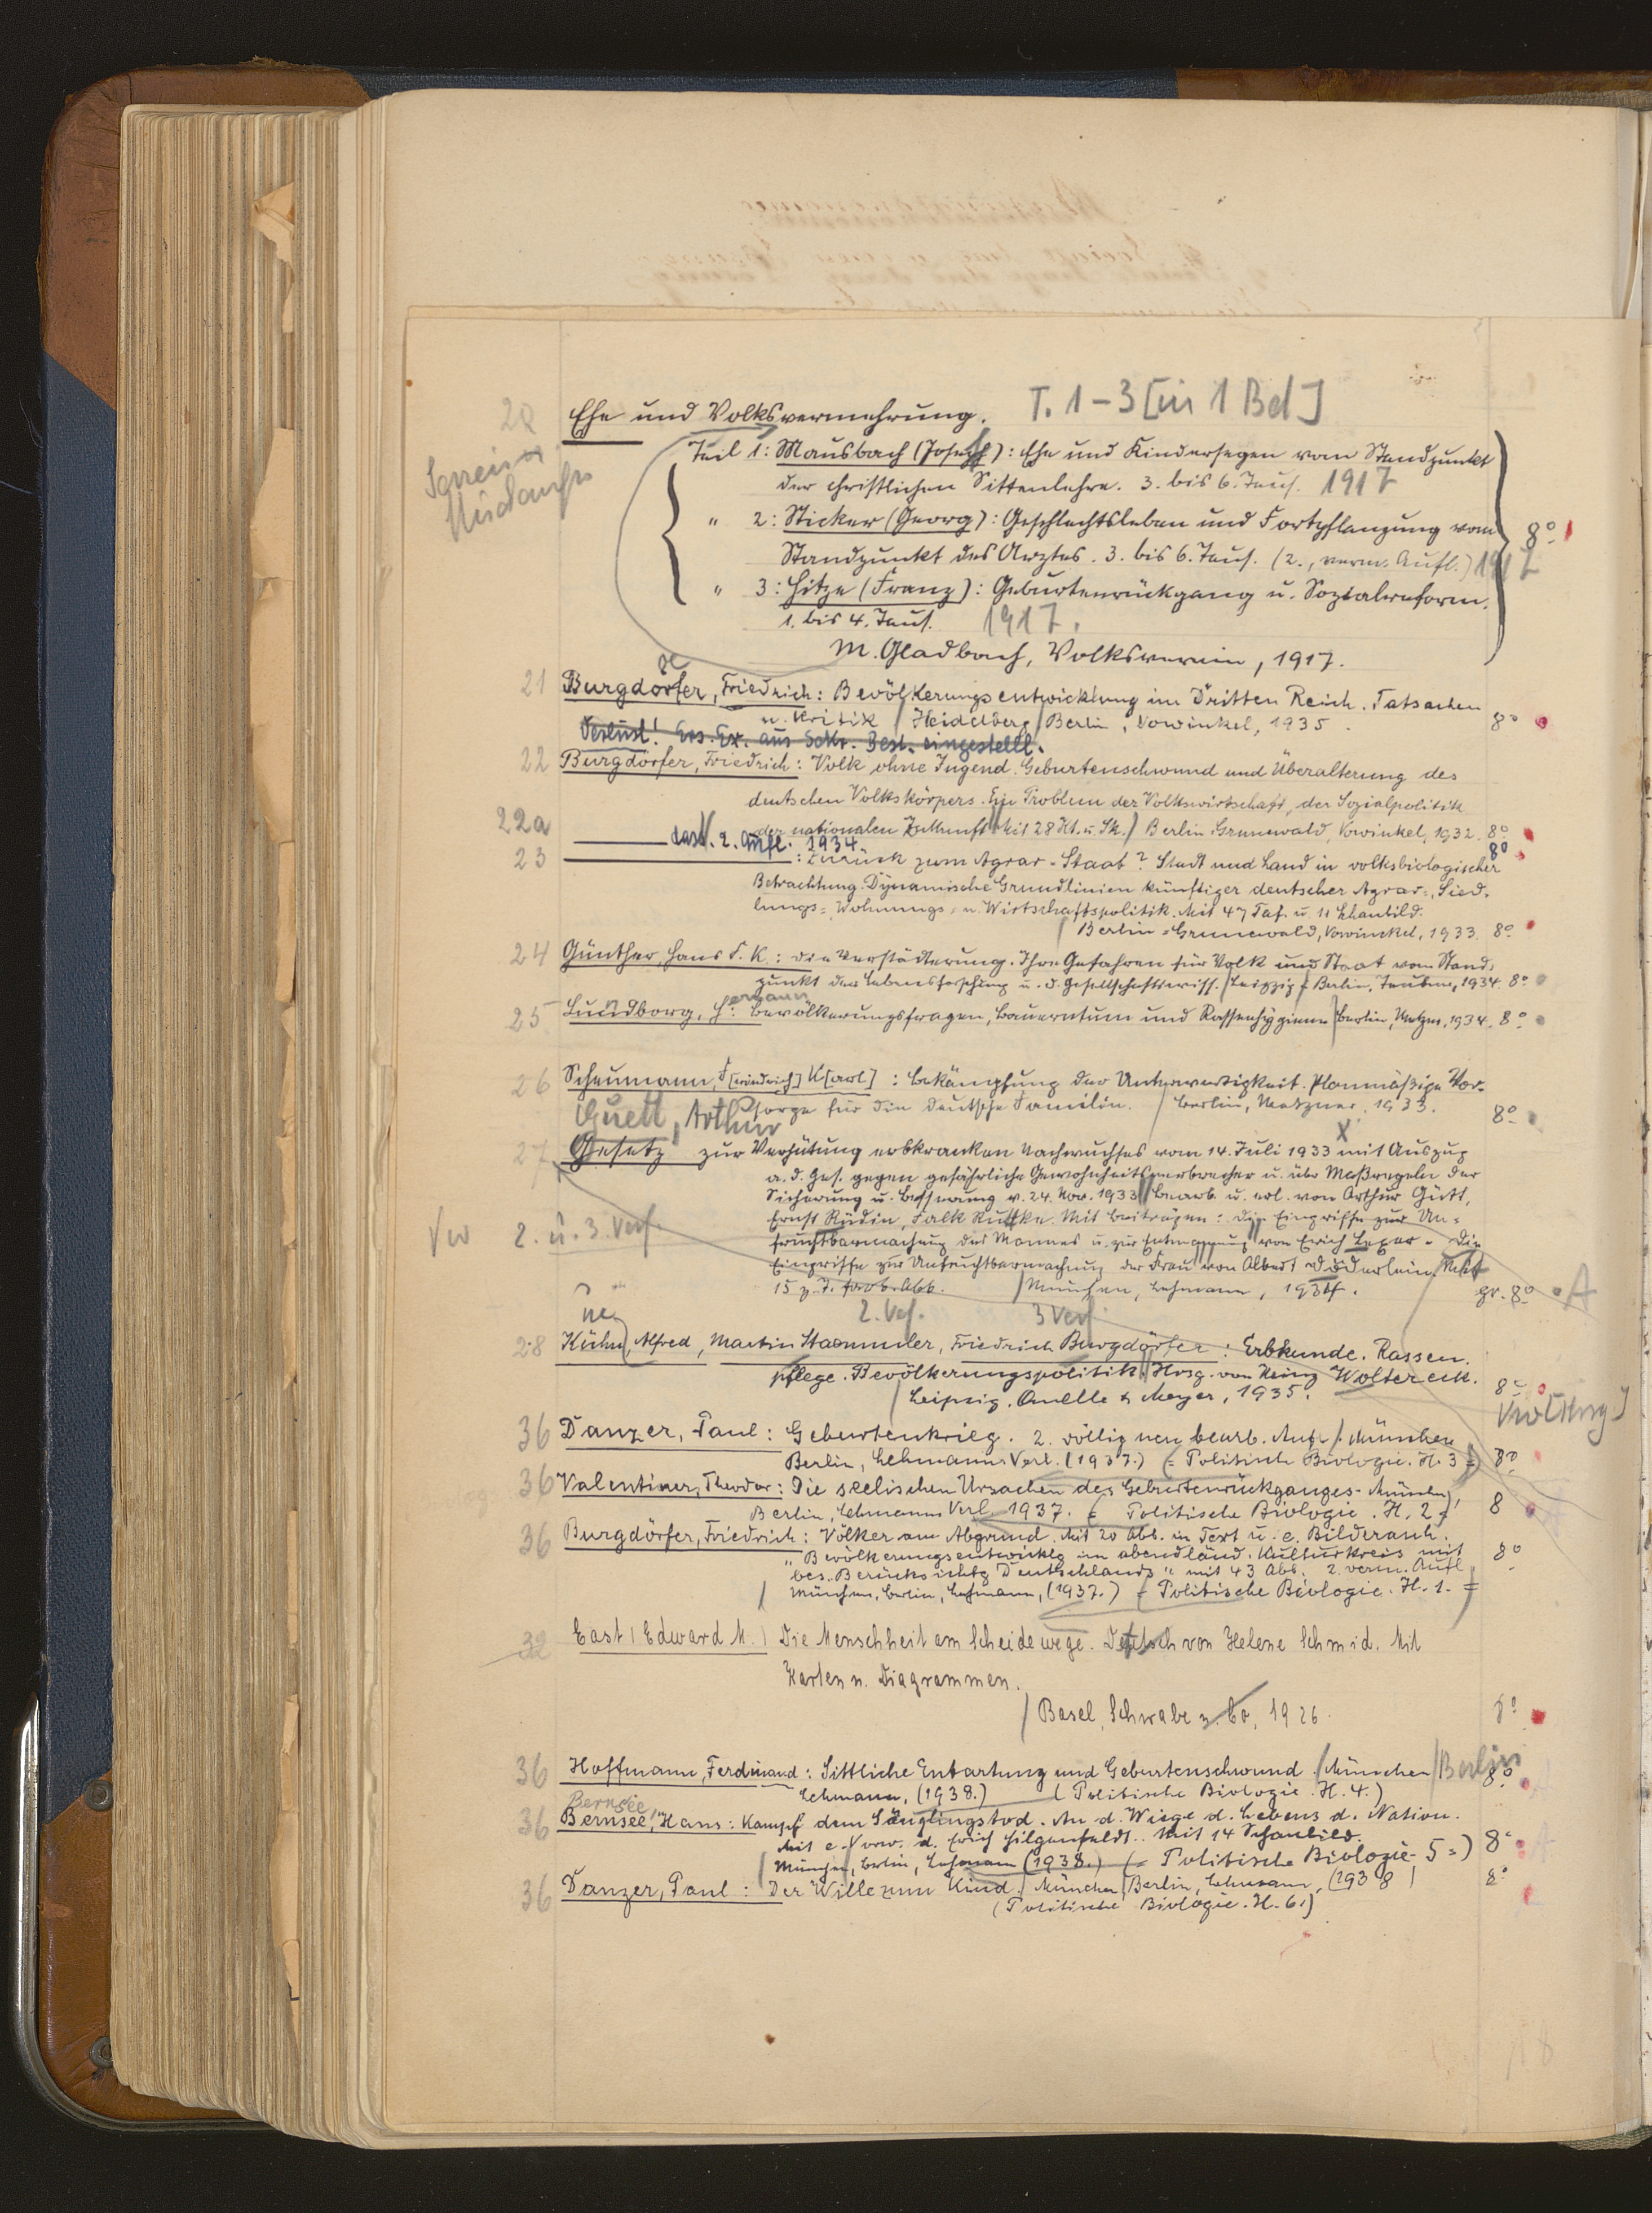 20 Ehe und Volksvermehrung. T. 1-3 [in 1 Bd]
Teil 1: Mausbach (Joseph): Ehe und Kindersegen vom Standpunkt
der christlichen Sittenlehre. 3. bis 6. Taus. 1917
" 2: Sticker (Georg): Geschlechtsleben und Fortpflanzung vom
Standpunkt des Arztes. 3. bis 6. Taus. (2., verm. Aufl.) 1917 8°
" 3: Hitze (Franz): Geburtenrückgang u. Sozialreform.
1. bis 4. Taus. 1917.
M. Gladbach, Volksverein, 1917.
21 Burgdörfer, Friedrich: Bevölkerungsentwicklung im Dritten Reich. Tatsachen
u. Kritik / Heidelberg / Berlin, Vowinkel, 1935. 8°
Verlust! Ers. Ex. aus Sekr. Best. eingestellt.
22 Burgdörfer, Friedrich: Volk ohne Jugend. Geburtenschwund und Überalterung des
deutschen Volkskörpers. Ein Problem der Volkswirtschaft, der Sozialpolitik
der nationalen Zukunft Mit 28 Kt. u. Sk. / Berlin-Grunewald, Vowinkel, 1932. 8°
22a dass. 2. Aufl. 1934 8°
23 : Zurück zum Agrar-Staat? Stadt und Land in volksbiologischer
Betrachtung. Dynamische Grundlinien künftiger deutscher Agrar-, Sied-
lungs-, Wohnungs- u. Wirtschaftspolitik. Mit 47 Taf. u. 11 Schaubild.
Berlin-Grunewald, Vowinkel, 1933. 8°
24 Günther Hans F. K.: Die Verstädterung. Ihre Gefahren für Volk und Staat vom Stand-
punkt der Lebensforschung u. d. Gesellschaftswiss. / Leipzig / Berlin, Teubner, 1934. 8°
25 Lundborg, Hermann: Bevölkerungsfragen, Bauerntum und Rassenhygiene / Berlin, Metzner, 1934. 8°
26 Scheumann, F[riedrich] K[arl]: Bekämpfung der Unterwertigkeit. Planmäßige Vor-
sorge für die deutsche Familie. / Berlin, Metzner, 1933. 8°
Guett, Arthur
27 Gesetz zur Verhütung erbkranken Nachwuchses vom 14. Juli 1933 mit Auszug
a. d. Ges. gegen gefährliche Gewohnheitsverbrecher u. über Maßregeln der
Sicherung u. Besserung v. 24. Nov. 1933 Bearb. u. erl. von Arthur Gütt,
Ernst Rüdin, Falk Ruttke. Mit Beiträgen: Die Eingriffe zur Un-
Vw 2. u. 3. Verf. fruchtbarmachung des Mannes u. zur Entmannung von Erich Lexer. - Die
Eingriffe zur Unfruchtbarmachung der Frau von Albert Döderlein. Mit
15 z. T. farb. Abb. / München, Lehmann, 1934. gr. 8° A
2. Verf. 3 Verf
28 Kühn, Alfred, Martin Staemmler, Friedrich Burgdörfer: Erbkunde. Rassen-
pflege. Bevölkerungspolitik Hrsg. von Heinz Woltereck.
Leipzig. Quelle & Meyer, 1935. 8°
Vw [Hrsg]
36 Danzer, Paul: Geburtenkrieg. 2. völlig neu bearb. Aufl. / München
Berlin, Lehmanns Verl. (1937.) (= Politische Biologie. H. 3 =) 8°
36 Valentiner, Theodor: Die seelischen Ursachen des Geburtenrückganges. München,
Berlin, Lehmanns Verl. 1937. (= Politische Biologie. H. 2 = 8
36 Burgdörfer, Friedrich: Völker am Abgrund. Mit 20 Abb. in Text u. e. Bilderanh.
"Bevölkerungsentwicklg im abendländ. Kulturkreis mit 8°
bes. Berücksichtg Deutschlands" mit 43 Abb. 2. verm. Aufl
München, Berlin, Lehmann, (1937.) (= Politische Biologie. H. 1. =)
32 East (Edward M.) Die Menschheit am Scheidewege. Deutsch von Helene Schmid. Mit
Karten u. Diagrammen.
/ Basel, Schwabe u. Co, 1926. 8°
36 Hoffmann, Ferdinand: Sittliche Entartung und Geburtenschwund. / München / Berlin
Lehmann, (1938.) (Politische Biologie. H. 4.) 8°
Bernsee
36 Bernsee, Hans: Kampf dem Säuglingstod. An d. Wiege d. Lebens d. Nation.
Mit e. Vorw. d. Erich Hilgenfeldt. Mit 14 Schaubild.
München, Berlin, Lehmann (1938.) (= Politische Biologie 5 =) 8°
36 Danzer, Paul: Der Wille zum Kind. / München / Berlin, Lehmann, (1938) 8°
(Politische Biologie. H. 6.)